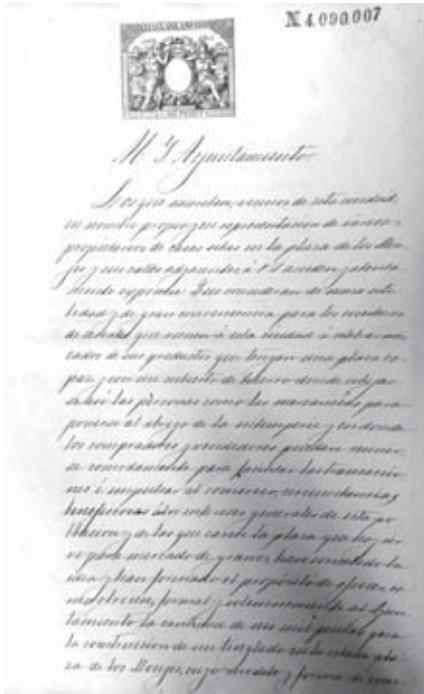 N.4.090.007
M. I. Ayuntamiento
Los que suscriben, vecinos de esta ciudad,
en nombre propio y en representacion de varios
propietarios de casas sitas en la plaza de los Mon-
jes y sus calles adyacentes á V. S. acuden y atenta-
mente exponen: Que consideran de suma uti-
lidad y de gran conveniencia para los vendedores
de que vienen á esta ciudad á
de sus productos que tengan una plaza ca-
paz y con un de donde
las personas como las mercancias para
ponerse al abrigo de la intemperie y en donde
los compradores y vendedores puedan mover-
se comodamente para facilitar las transaccio-
nes é impulsar al comercio, circunstancias
beneficiosas á los intereses generales de esta po-
blacion y de las que carece la plaza que hoy sir-
ve para mercado de granos, han la
idea y han formado el propósito de ofrecer, co-
mo ofrecen, formal y solemnemente al Ayun-
tamiento la cantidad de mil pesetas para
la construccion de un tinglado en la citada pla-
za de los Monjes, cuyo modelo y forma de cons-